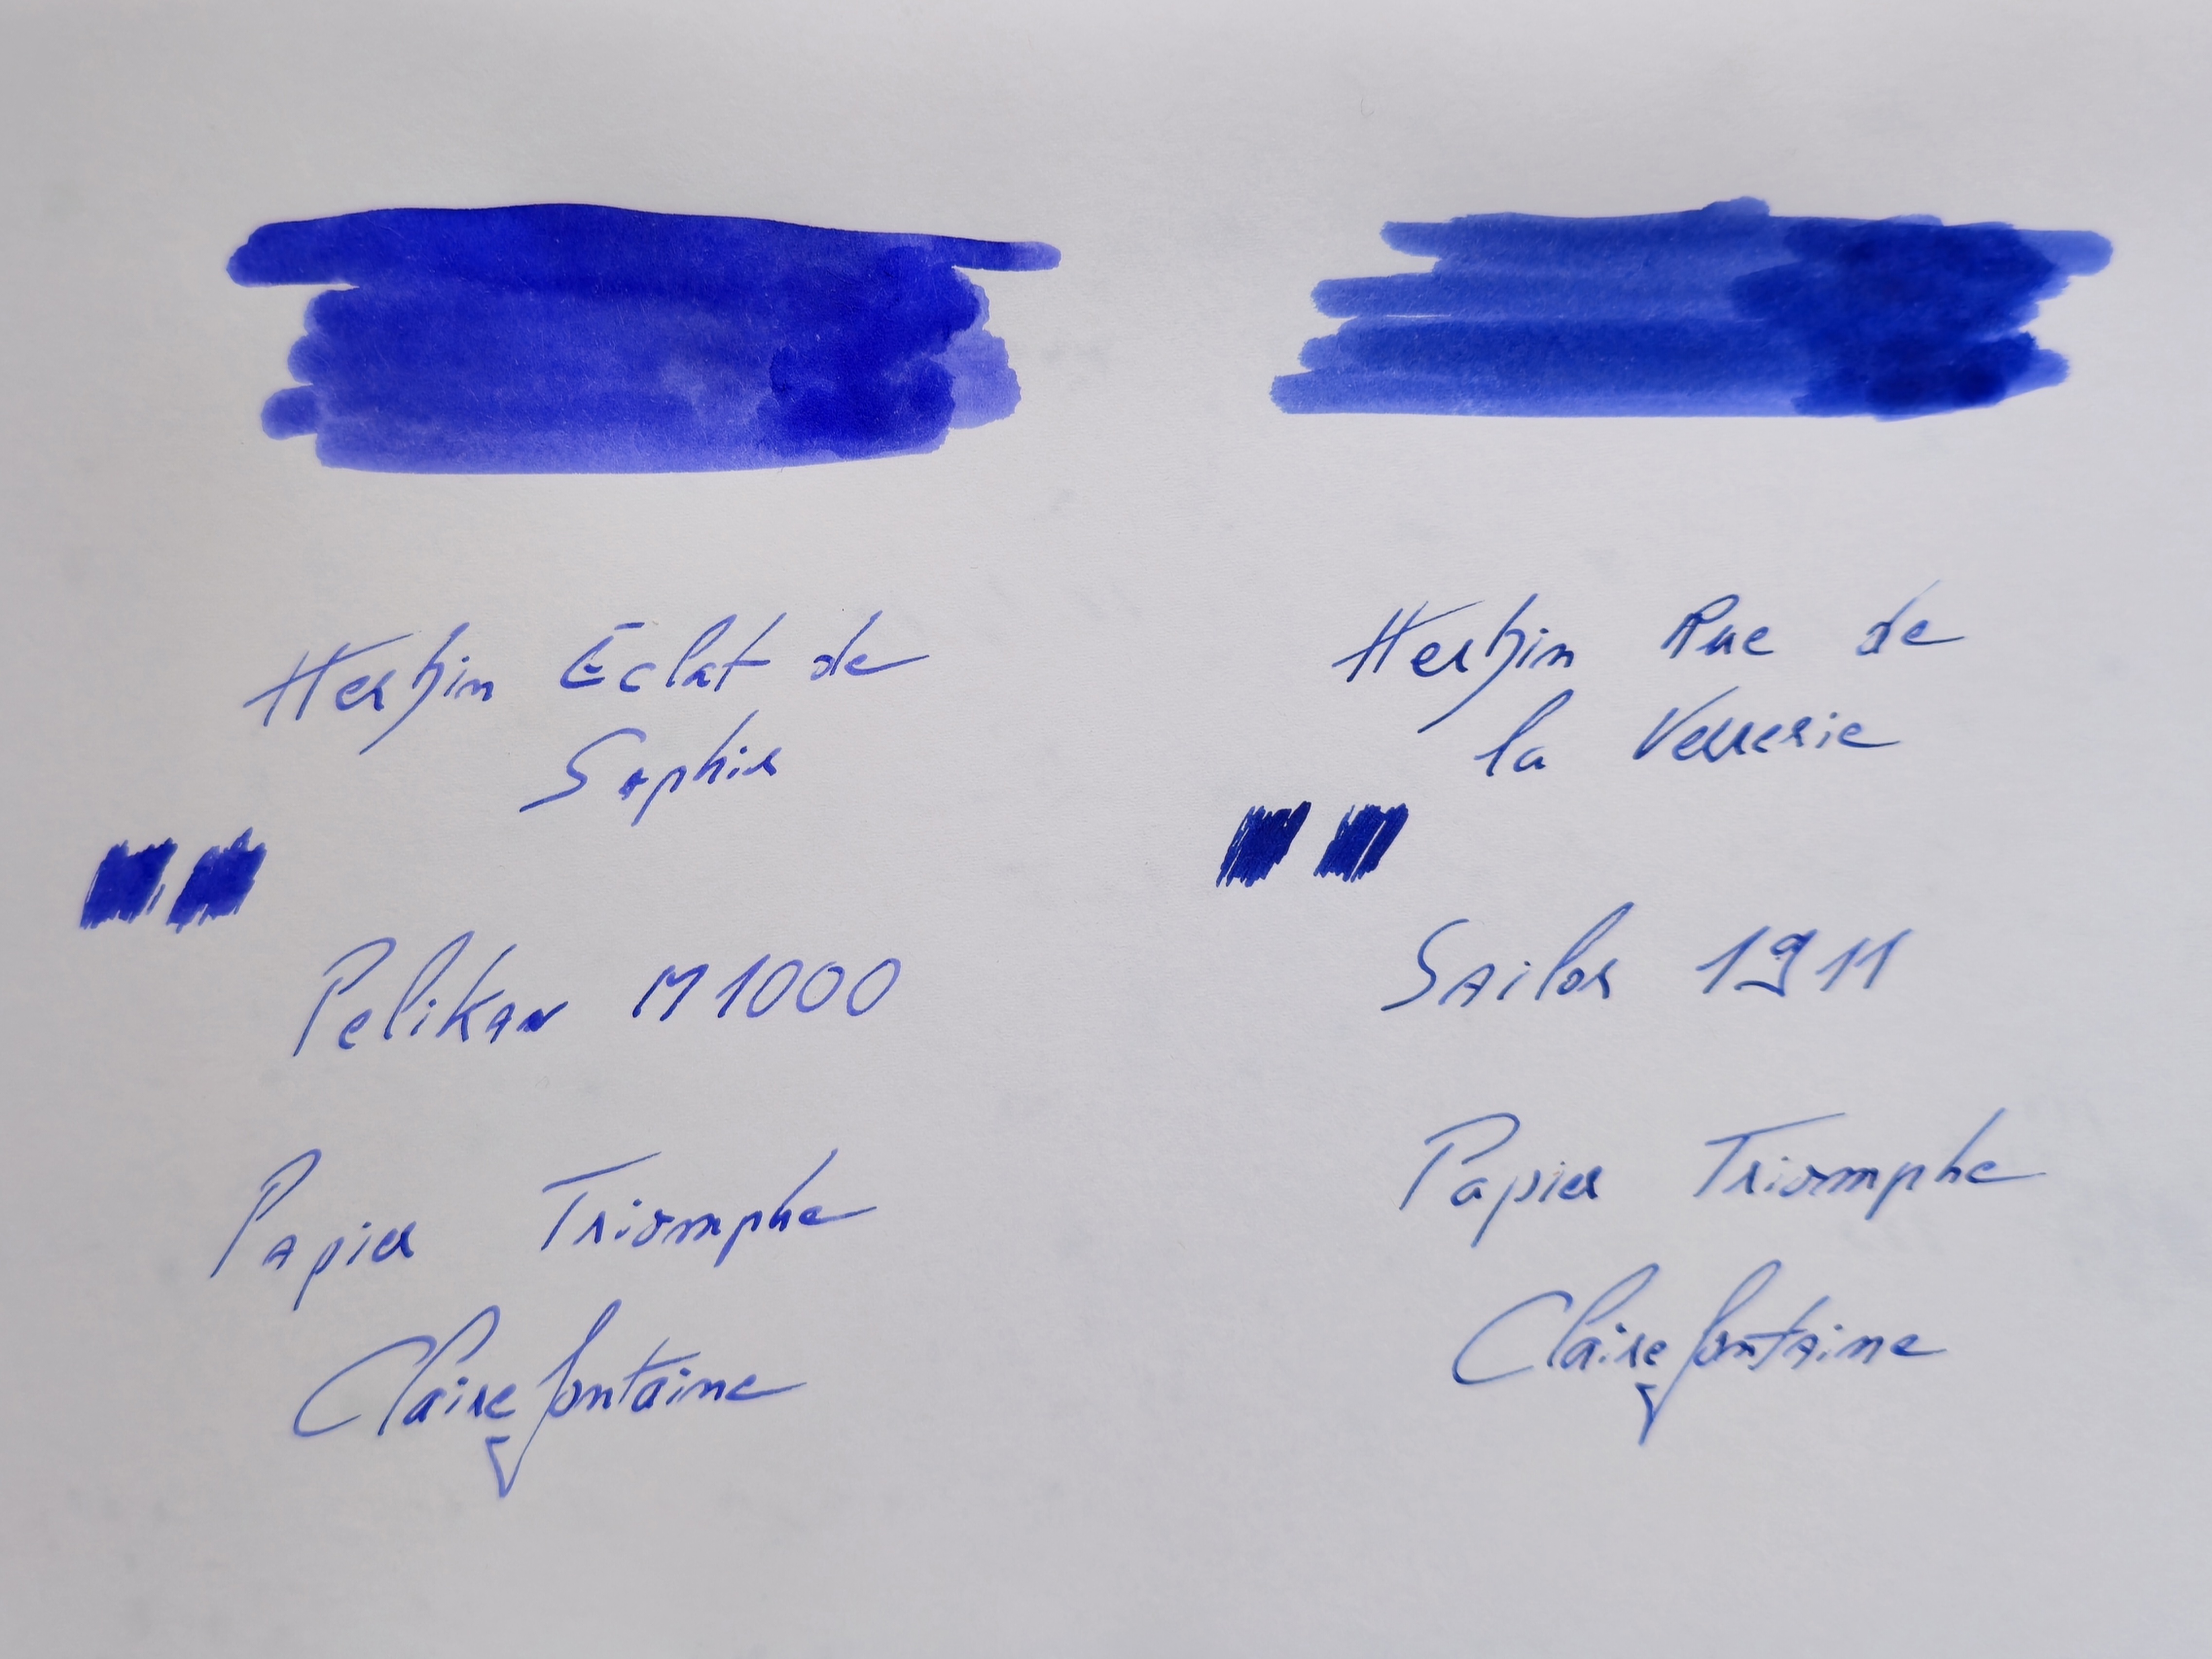 Herbin Eclat de
Saphir
Pelikan M1000
Papier Triomphe
Clairefontaine
Herbin Rue de
la Verrerie
Sailor 1911
Papier Triomphe
Clairefontaine